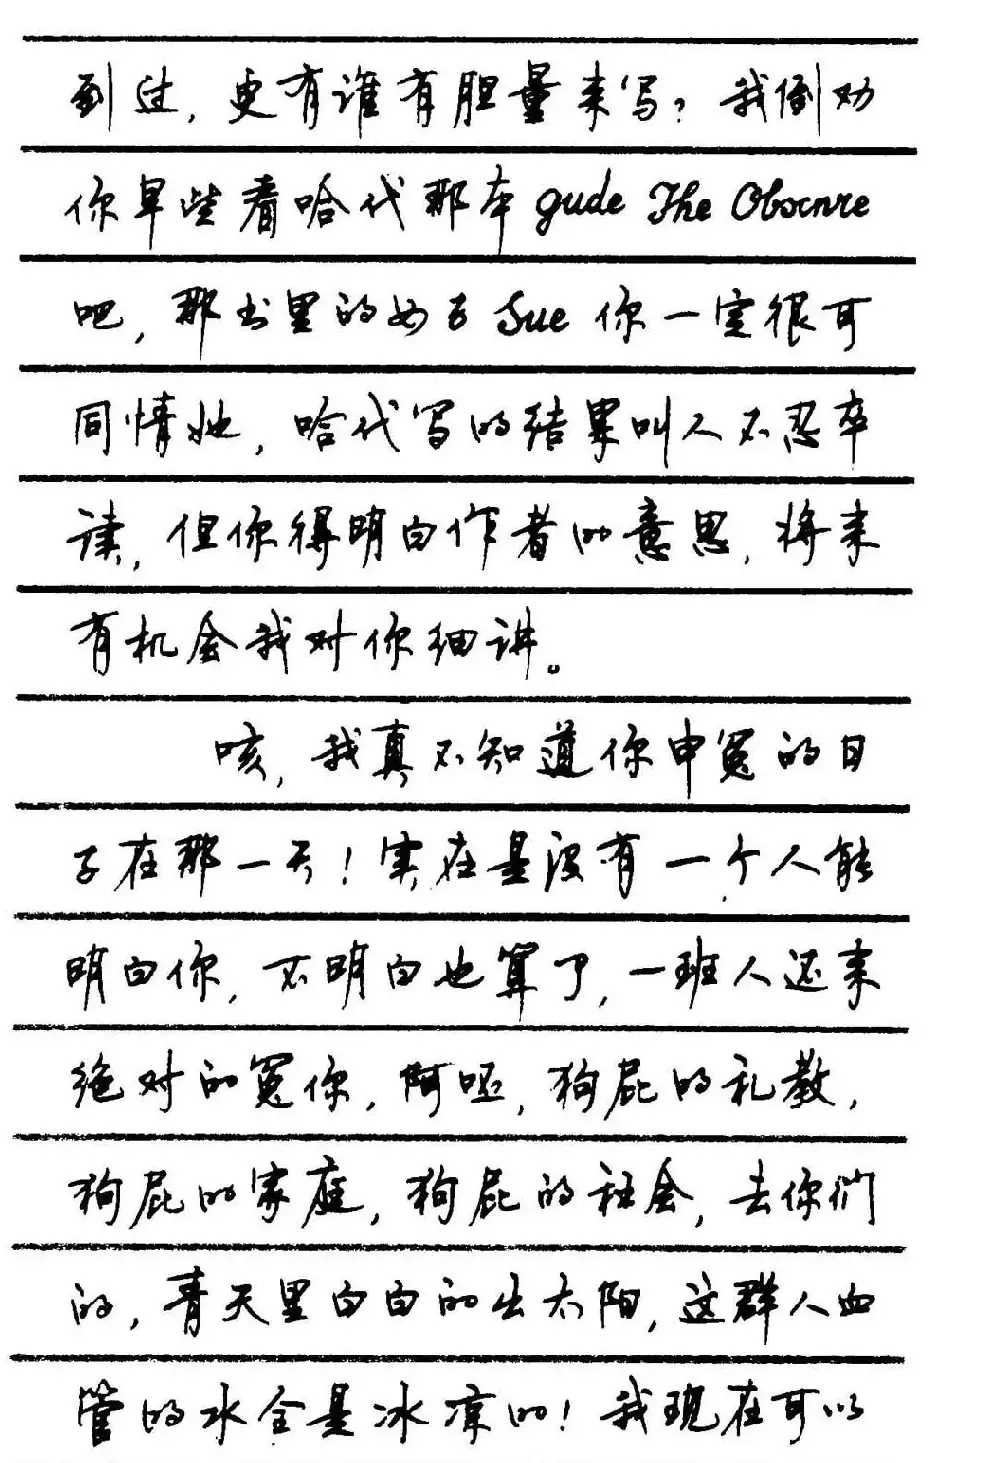 到过，更有谁有胆量来写？我倒劝
你早些看哈代那本gude The Obscnre
吧，那书里的女子Sue你一定很可
同情她，哈代写的结果叫人不忍卒
读，但你得明白作者的意思，将来
有机会我对你细讲。
咳，我真不知道你申冤的日
子在那一天！实在是没有一个人能
明白你，不明白也算了，一班人还来
绝对的冤你，阿呸，狗屁的礼教，
狗屁的家庭，狗屁的社会，去你们
的，青天里白白的出太阳，这群人血
管的水全是冰凉的！我现在可以